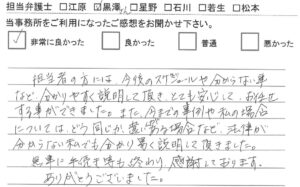 担当弁護士 □江原 ☑黒澤さん □星野 □石川 □若生 □松本
当事務所をご利用になったご感想をお聞かせ下さい。
☑非常に良かった □良かった □普通 □悪かった
担当者の方には、今後のスケジュールや分からない事
など分かりやすく説明して頂き とても安心して、お任せ
する事ができました。また、今までの事例や私の場合
については、どう同じか、異なる場合など、法律が
分からない私でも分かり易く説明して頂きました。
無事に手続き等も終わり、感謝しております。
ありがとうございました。